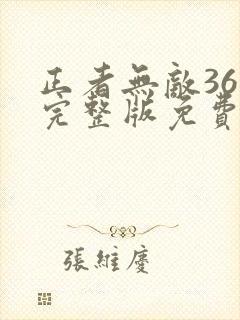 正者無敵36
完整版免費
張維慶